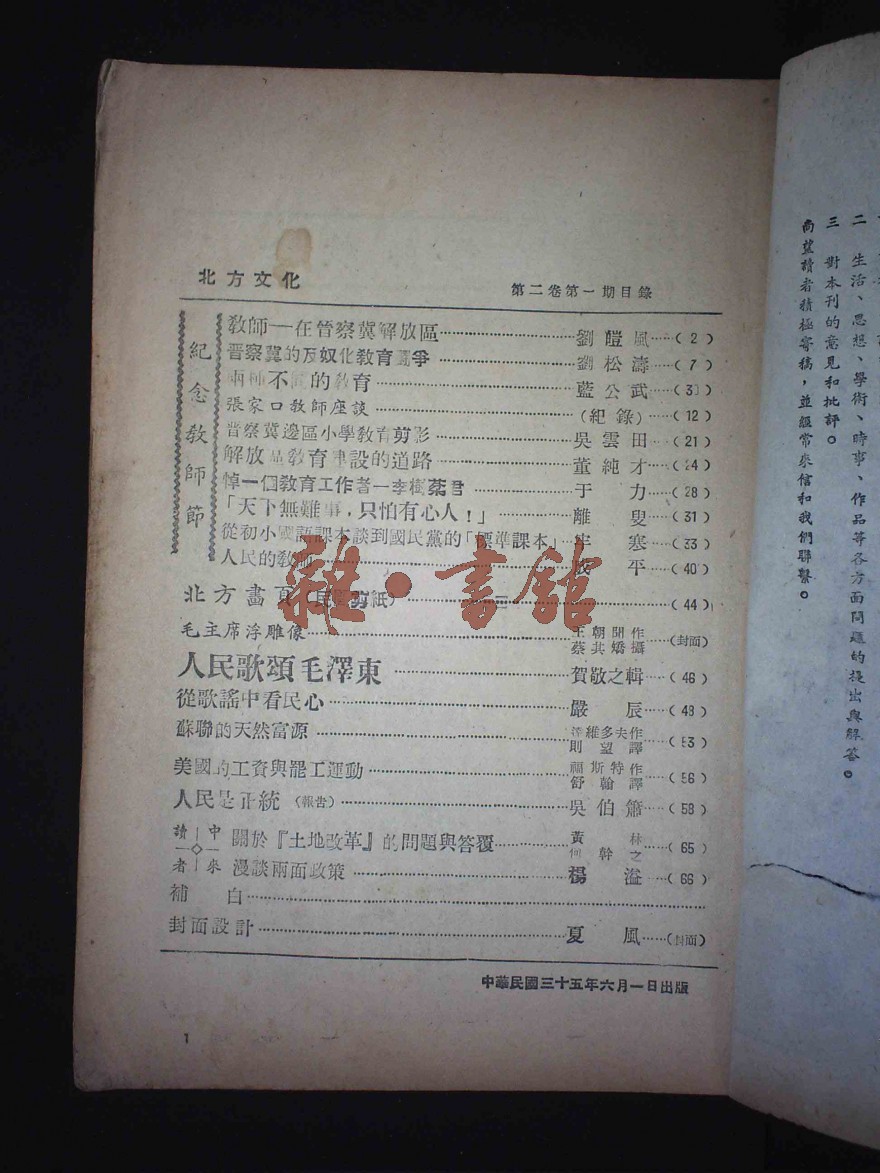 北方文化
第二卷第一期目錄
紀念教師節
教師—在晉察冀解放區 劉皚風 (2)
晉察冀的反奴化教育鬪爭 劉松濤 (7)
兩種不同的教育 藍公武
張家口教師座談 (紀錄) (12)
晋察冀邊區小學教育剪影 吳雲田 (21)
解放區教育建設的道路 董純才 (24)
悼一個教育工作者—李樹棻君 于力 (28)
「天下無難事，只怕有心人！」 離叟 (31)
從初小國語課本談到國民黨的「標準課本」 寒 (33)
人民的教師 平 (40)
北方畫頁（民間剪紙） (44)
毛主席浮雕像 王朝聞作 蔡其矯攝 (封面)
人民歌頌毛澤東 賀敬之輯 (46)
從歌謠中看民心 嚴辰 (48)
蘇聯的天然富源 達維多夫作 則望譯 (53)
美國的工資與罷工運動 福斯特作 舒翰譯 (56)
人民是正統（報告） 吳伯簫 (58)
讀者中來
關於『土地改革』的問題與答覆 黃林 何幹之 (65)
漫談兩面政策 楊溢 (66)
補白
封面設計 夏風 (封面)
中華民國三十五年六月一日出版
1
二 生活、思想、學術、時事、作品等各方面問題的提出與解答。
三 對本刊的意見和批評。
尚望讀者積極寄稿，並經常來信和我們聯繫。
雜·書館